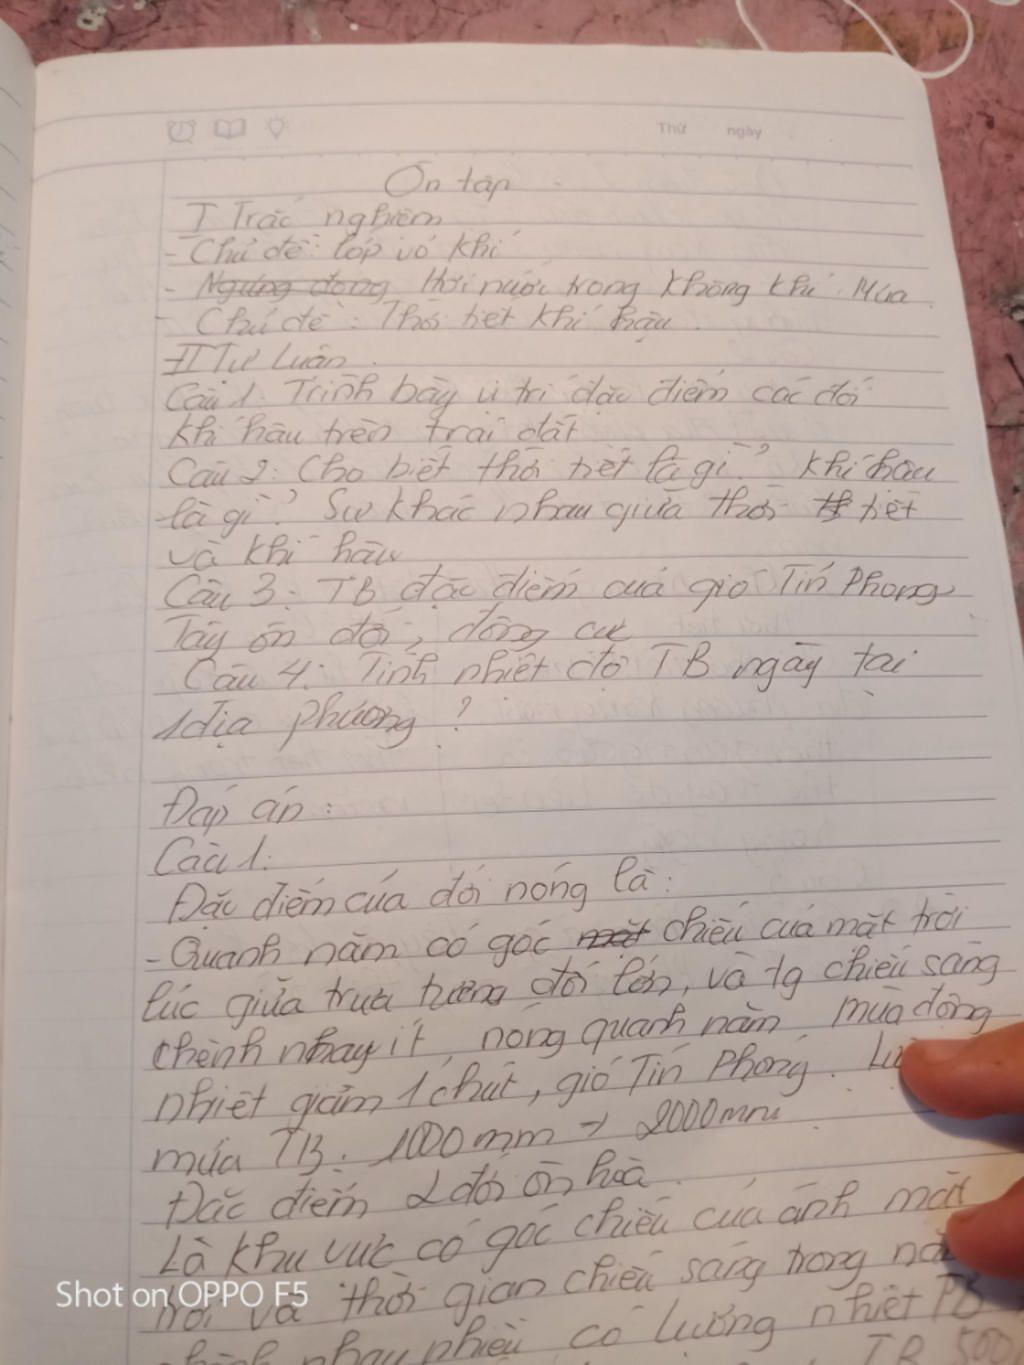 Thứ ngày
Ôn tập
I Trắc nghiệm
- Chủ đề: lớp vỏ khí
- Ngưng đọng Hơi nước trong không khí. Mưa.
- Chủ đề: Thời tiết khí hậu.
II Tự Luận.
Câu 1: Trình bày vị trí đặc điểm các đới
khí hậu trên trái đất
Câu 2: Cho biết thời tiết là gì? Khí hậu
là gì? Sự khác nhau giữa thời tiết
và khí hậu
Câu 3: TB đặc điểm của gió Tín Phong
Tây ôn đới, đông cực
Câu 4: Tính nhiệt độ TB ngày tại
1 địa phương?
Đáp án:
Câu 1:
Đặc điểm của đới nóng là:
- Quanh năm có góc mặt chiếu của mặt trời
lúc giữa trưa tương đối lớn, và tg chiếu sáng
chênh nhay ít, nóng quanh năm, mùa đông
nhiệt giảm 1 chút, gió Tín Phong.
mưa TB: 1000mm → 2000mm
Đặc điểm 2 đới ôn hoà.
Là khu vực có góc chiếu của ánh mặt
trời và thời gian chiếu sáng trong
nhau nhiều, có lượng nhiệt TB
TB 500
Shot on OPPO F5